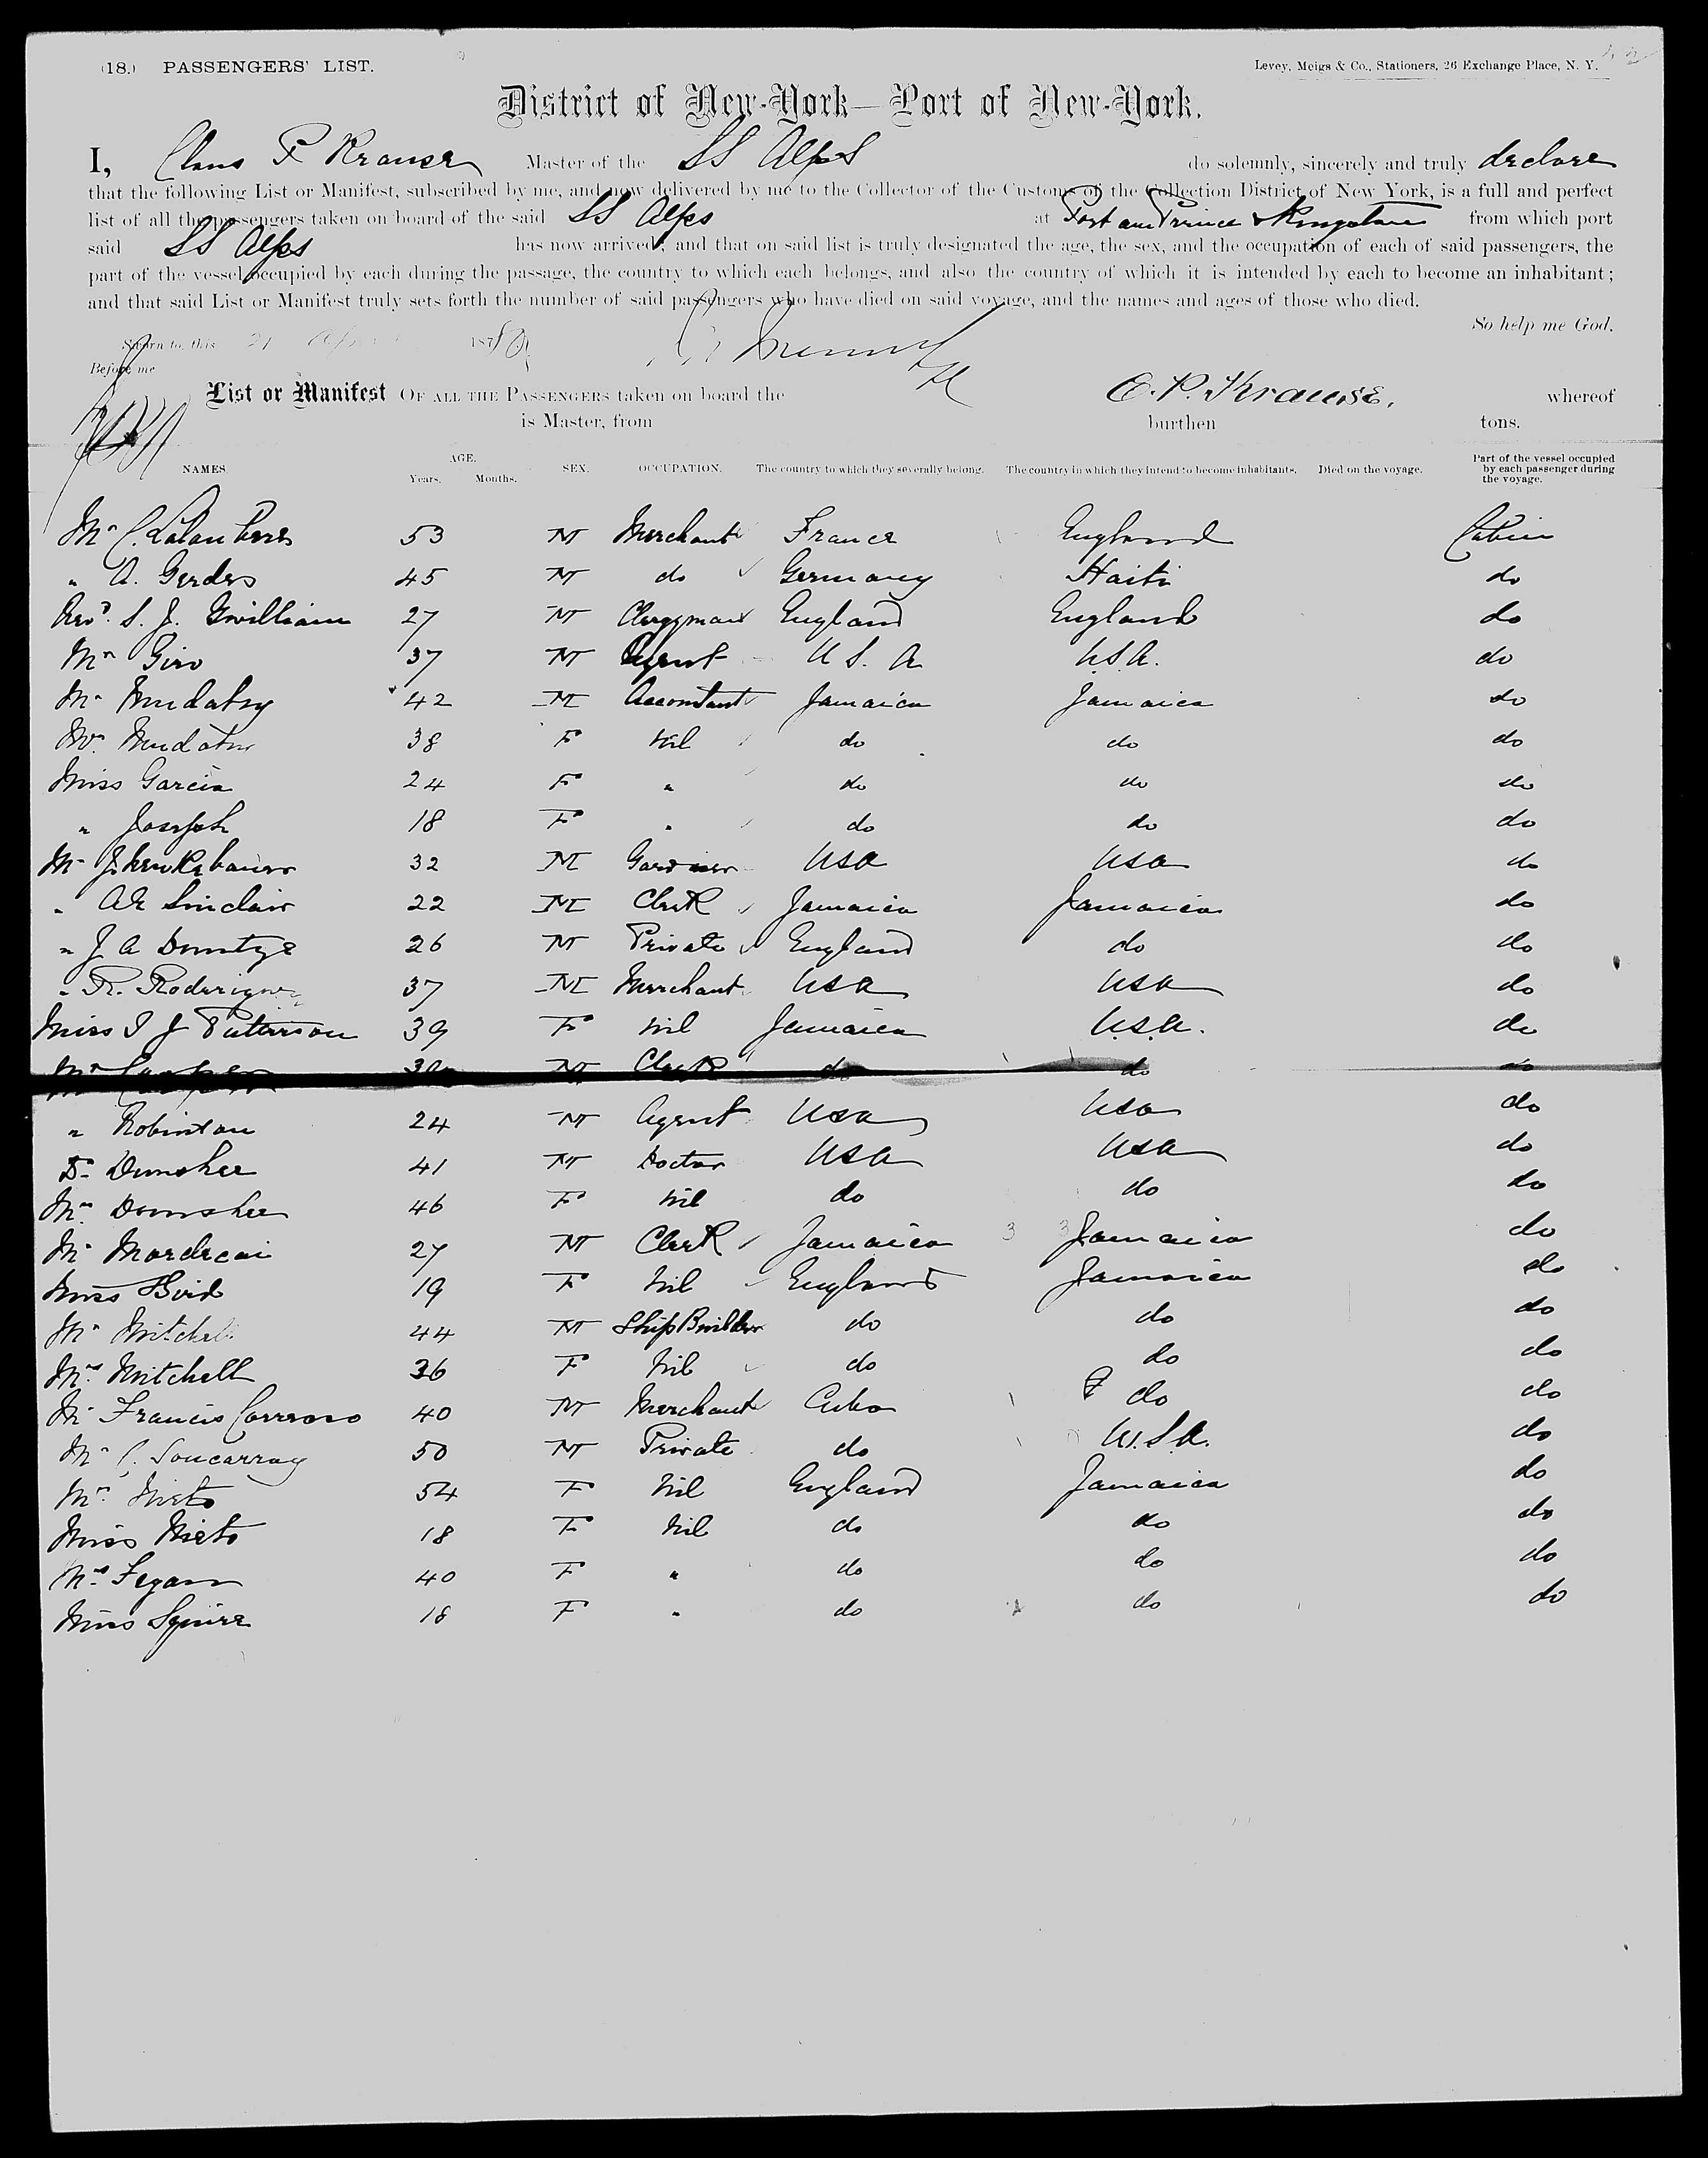 (18.) PASSENGERS' LIST. Levey, Meigs & Co., Stationers, 26 Exchange Place, N. Y.
District of New-York—Port of New-York.
I, Claus P Krause Master of the SS Alps do solemnly, sincerely and truly declare
that the following List or Manifest, subscribed by me, and now delivered by me to the Collector of the Customs of the Collection District of New York, is a full and perfect
list of all the passengers taken on board of the said SS Alps at Port au Prince & Kingston from which port
said SS Alps has now arrived; and that on said list is truly designated the age, the sex, and the occupation of each of said passengers, the
part of the vessel occupied by each during the passage, the country to which each belongs, and also the country of which it is intended by each to become an inhabitant;
and that said List or Manifest truly sets forth the number of said passengers who have died on said voyage, and the names and ages of those who died.
So help me God.
Sworn to, this 21 187
Before me
List or Manifest OF ALL THE PASSENGERS taken on board the C. P. Krause. whereof
is Master, from burthen tons.
NAMES AGE. Years. Months. SEX. OCCUPATION. The country to which they severally belong. The country in which they intend to become inhabitants. Died on the voyage. Part of the vessel occupied by each passenger during the voyage.
Mr C. 53 M Merchant France England Cabin
" A. Gerdes 45 M do Germany Haiti do
Revd. S. J. Gwilliam 27 M Clergyman England England do
Mr Giro 37 M Agent U S. A U.S.A. do
Mr 42 M Accountant Jamaica Jamaica do
38 F Nil do do do
Miss Garcia 24 F " do do do
" Joseph 18 F " do do do
Mr J. 32 M Gardner USA USA do
" AE Sinclair 22 M Clerk Jamaica Jamaica do
" J A 26 M Private England do do
" R. 37 M Merchant USA USA do
Miss I J Paterson 39 F Nil Jamaica U.S.A. do
Mr M Clerk do do do
" Robinson 24 M Agent USA USA do
Dr Dunshee 41 M Doctor USA USA do
Mrs Dunshee 46 F Nil do do do
Mr Mordecai 27 M Clerk Jamaica Jamaica do
Miss Bird 19 F Nil England Jamaica do
Mr Mitchell 44 M Ship Builder do do do
Mrs Mitchell 36 F Nil do do do
Mr Francis 40 M Merchant Cuba do do
Mr C. Soucarray 50 M Private do U.S.A. do
Mrs Nieto 54 F Nil England Jamaica do
Miss Nieto 18 F Nil do do do
Mrs Fegan 40 F " do do do
Miss Squire 18 F " do do do